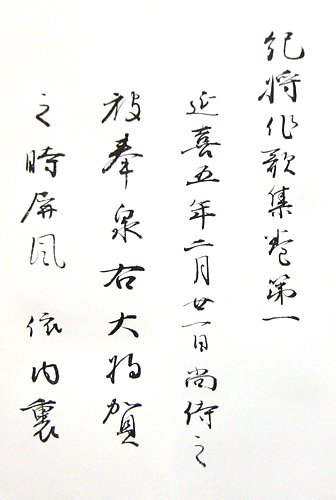 紀将作歌集巻第一
延喜五年二月廿一日尚侍之
被奉泉右大将賀
之時屏風 依内裏